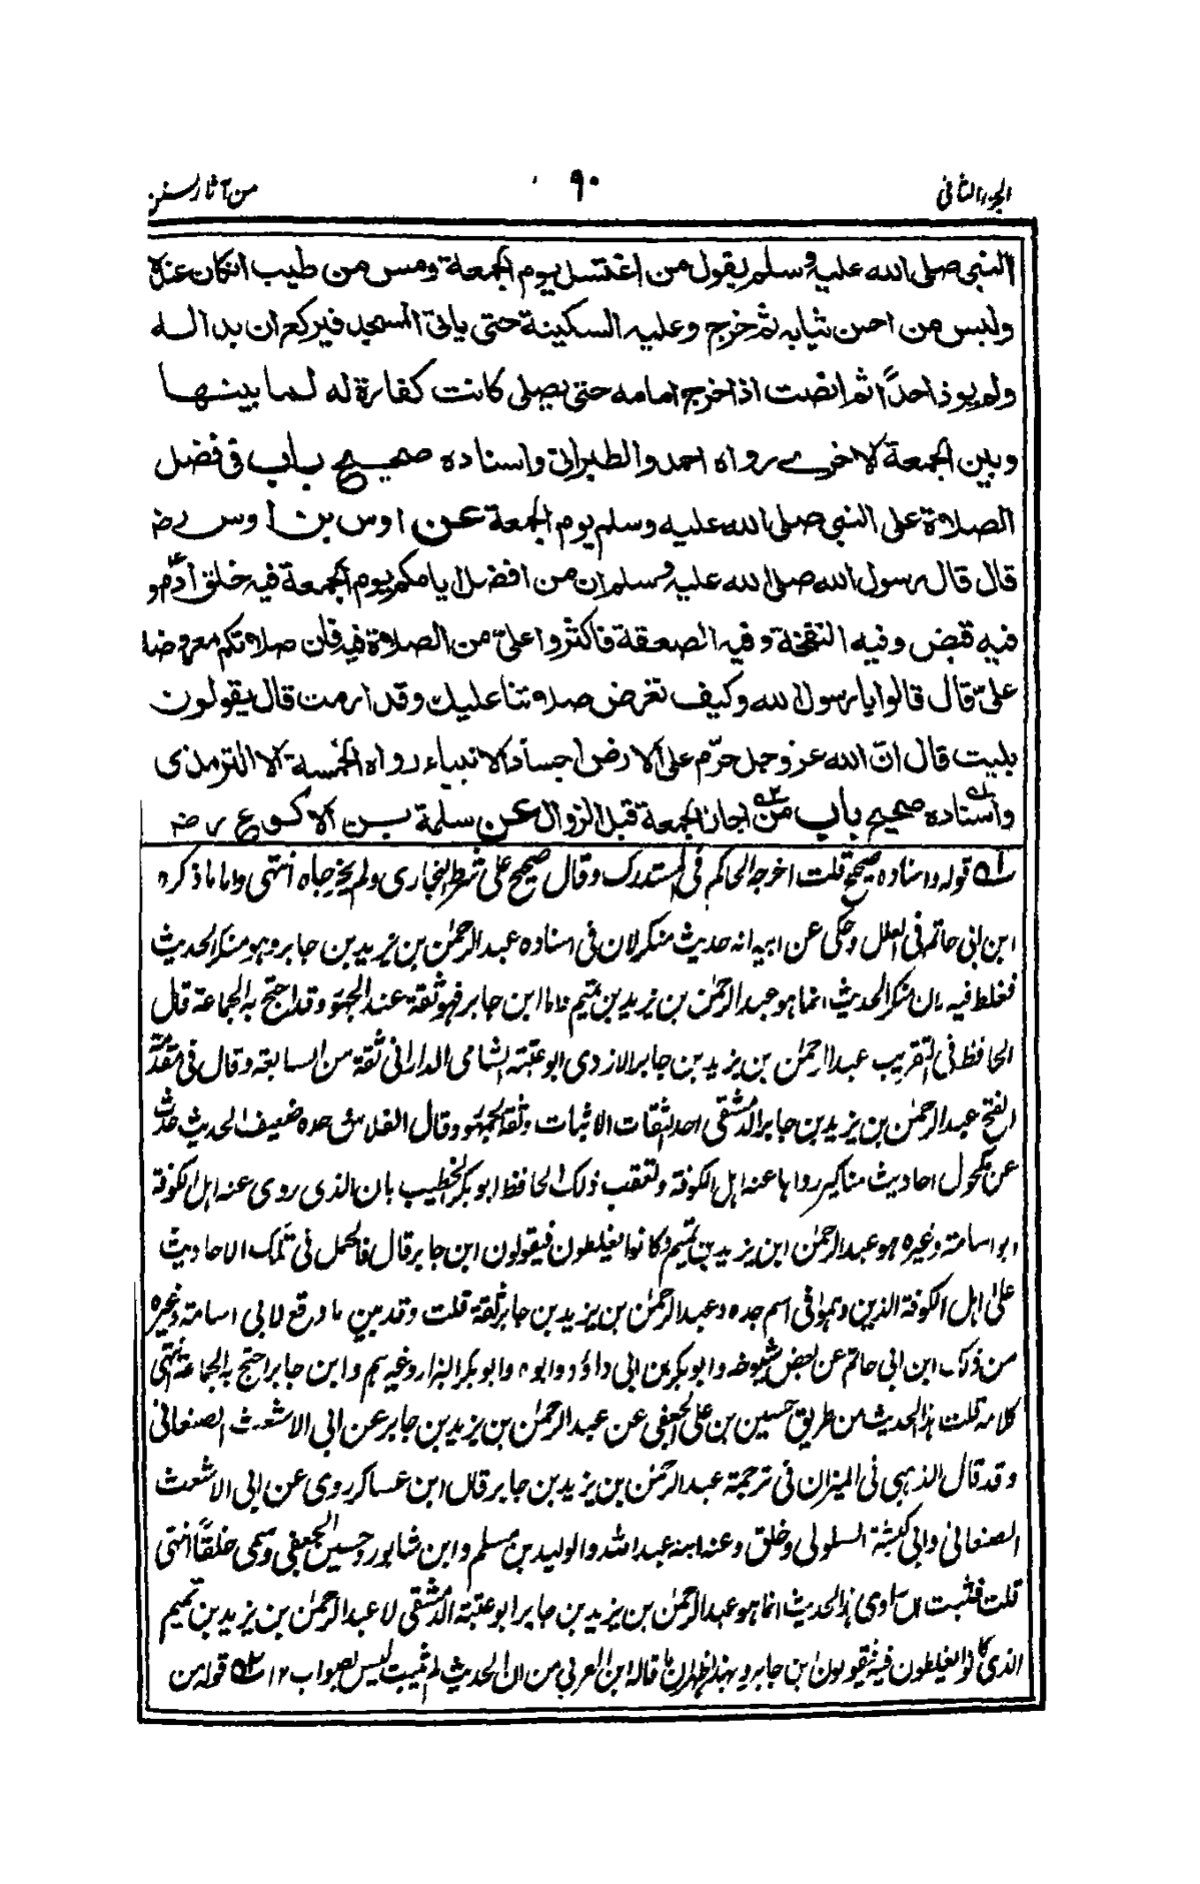 الجزء الثانی ۹۰ من آثار السنن
النبی صلی الله علیه وسلم یقول من اغتسل یوم الجمعة ومس من طیب ان کان عنده
ولبس من احسن ثیابه ثم خرج وعلیه السکینة حتی یاتی المسجد فیرکع ان بدا له
ولم یوذ احداً ثم انصت اذا خرج امامه حتی یصلی کانت کفارة له لما بینها
وبین الجمعة الاخرے رواه احمد والطبرانی واسناده صحیح باب فی فضل
الصلاة علی النبی صلی الله علیه وسلم یوم الجمعة عن اوس بن اوس رضـ
قال قال رسول الله صلی الله علیه وسلم ان من افضل ایامکم یوم الجمعة فیه خلق اٰدم و
فیه قبض وفیه النفخة وفیه الصعقة فاکثروا علیّ من الصلاة فیه فان صلاتکم معروضة
علیّ قال قالوا یا رسول الله وکیف تعرض صلاتنا علیك وقد ارمت قال یقولون
بلیت قال انّ الله عز وجل حرّم علی الارض اجساد الانبیاء رواه الخمسة الا الترمذی
واسناده صحیح باب من اجاز الجمعة قبل الزوال عن سلمة بن الاکوع رضـ
۱؎ قوله واسناده صحیح قلت اخرجه الحاکم فی المستدرک وقال صحیح علی شرط البخاری ولم یخرجاه انتهی واما ما ذکره
ابن ابی حاتم فی العلل وحکی عن ابیه انه حدیث منکر لان فی اسناده عبد الرحمٰن بن یزید بن جابر وهو منکر الحدیث
فغلط فیه لان منکر الحدیث انما هو عبد الرحمٰن بن یزید بن تمیم فاما ابن جابر فهو ثقة عند الجمهور وقد احتج به الجماعة قال
الحافظ فی التقریب عبد الرحمٰن بن یزید بن جابر الازدی ابو عتبة الشامی الدارانی ثقة من السابعة وقال فی مقدمة
الفتح عبد الرحمٰن بن یزید بن جابر الدمشقی احد الثقات الاثبات وثقه الجمهور وقال الفلاس وحده ضعیف الحدیث حدث
عن مکحول احادیث مناکیر رواها عنه اهل الکوفة وتعقب ذلک الحافظ ابو بکر الخطیب بان الذی روی عنه اهل الکوفة
ابو اسامة وغیره هو عبد الرحمٰن ابن یزید بن تمیم وکانوا یغلطون فیقولون ابن جابر قال فالحمل فی تلک الاحادیث
علیٰ اهل الکوفة الذین وهموا فی اسم جده وعبد الرحمٰن بن یزید بن جابر ثقة قلت وقد بین ما وقع لابی اسامة وغیره
من ذلک ابن ابی حاتم عن بعض شیوخه وابو بکر بن ابی داؤد وابوه وابو بکر البزار وغیرهم وابن جابر احتج به الجماعة انتهی
کلامه قلت هذا الحدیث من طریق حسین بن علی الجعفی عن عبد الرحمٰن بن یزید بن جابر عن ابی الاشعث الصنعانی
وقد قال الذهبی فی المیزان فی ترجمة عبد الرحمٰن بن یزید بن جابر قال ابن عساکر روی عن ابی الاشعث
الصنعانی وابی کبشة السلولی وخلق وعنه ابنه عبد الله والولید بن مسلم وابن شابور وحسین الجعفی وسمی خلقاً انتهی
قلت فثبت ان راوی هذا الحدیث انما هو عبد الرحمٰن بن یزید بن جابر ابو عتبة الدمشقی لا عبد الرحمٰن بن یزید بن تمیم
الذی کانوا یغلطون فیه فیقولون ابن جابر وبهذا ظهر ان ما قاله ابن العربی من ان الحدیث لم یثبت لیس بصواب ۱۲ ۲؎ قوله من